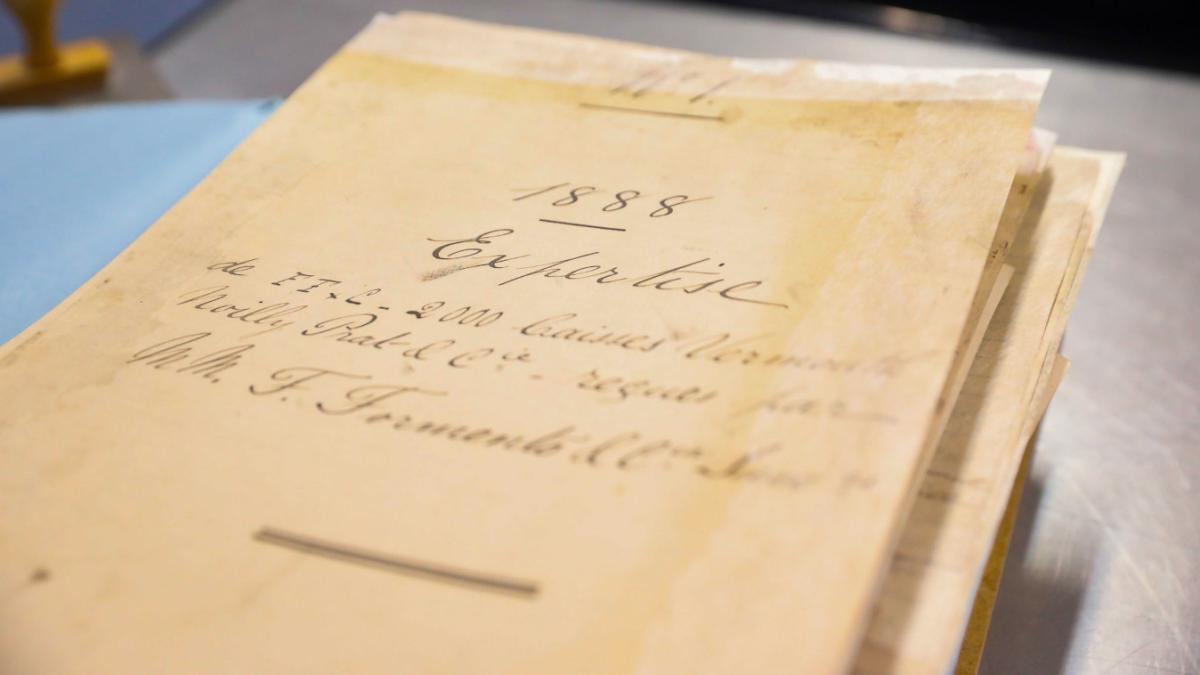 Nº 1.
1888
Expertise
de FF&C - 2000 Caisses Vermouth
Noilly Prat & Cie - reçues par
MM. F. Formento & Cie